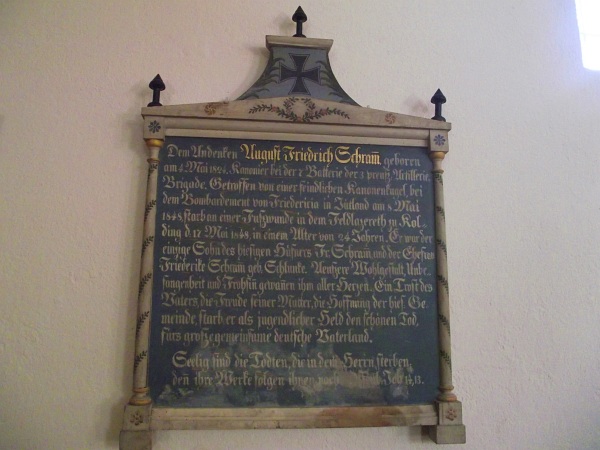 Dem Andenken August Friedrich Schram̄, geborn
am 4 Mai 1824 Kanonier bei der 2 Batterie der 3 preuß. Artillerie.
Brigade, Getroffen von einer feindlichen Kanonenkugel, bei
dem Bombardement von Fridericia in Jütland am 8 Mai
1848, starb an einer Fußwunde in dem Feldlazereth zu Kol-
ding d. 12 Mai 1848, in einem Alter von 24 Jahren, Er war der
einzige Sohn des hiesigen Hüfners Fr. Schram, und der Ehefrau
Friederike Schram geb. Schlunke. Aeußere Wohlgestalt, Unbe-
fangenheit und Frohsiñ gewañen ihm aller Herzen. Ein Trost des
Vaters, die Freude seiner Mutter, die Hoffnung der hies. Ge-
meinde starb er als jugendlicher Held den schönen Tod,
fürs große gemeinsame deutsche Vaterland.
Seelig sind die Todten, die in dem Herrn sterben,
den ihre Werke folgen ihnen nach 14, 13.